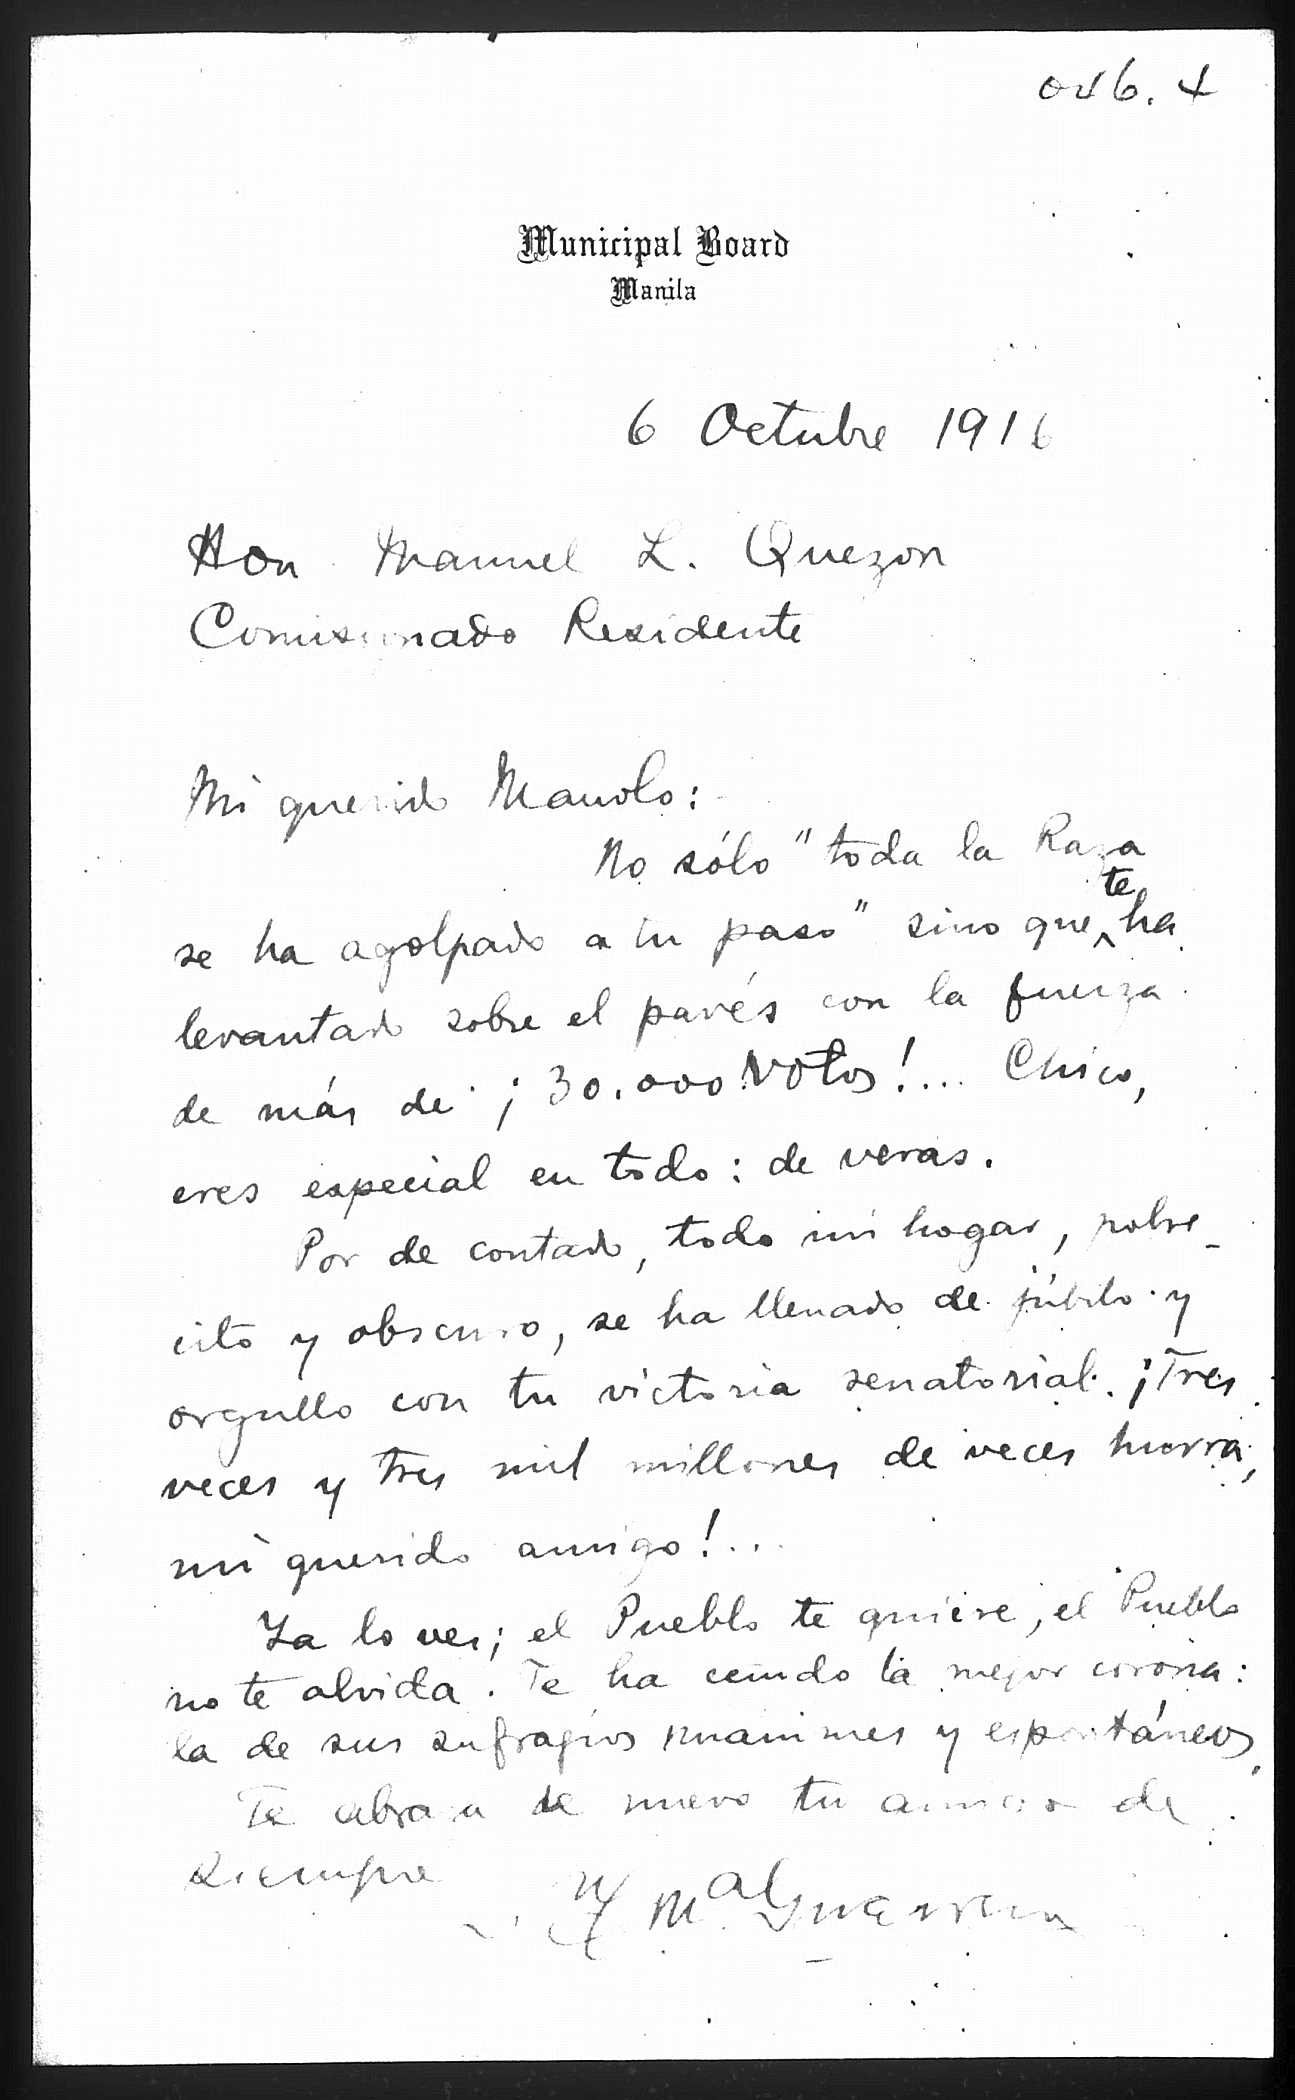 Municipal Board
Manila
6 Octubre 1916
Hon Manuel L. Quezon
Comisionado Residente
Mi querido Manolo:
No sólo "toda la Raza
se ha agolpado a tu paso" sino que te ha
levantado sobre el pavés con la fuerza
de más de ¡30.000 votos!... Chico,
eres especial en todo: de veras.
Por de contado, todo mi hogar, pobre-
cito y obscuro, se ha llenado de júbilo y
orgullo con tu victoria senatorial. ¡Tres
veces y tres mil millones de veces hurra,
mi querido amigo!...
Ya lo ves; el Pueblo te quiere, el Pueblo
no te olvida. Te ha ceñido la mejor corona:
la de sus sufragios unanimes y espontáneos.
Te abraza de nuevo tu amigo de
siempre
Ma Guerrero